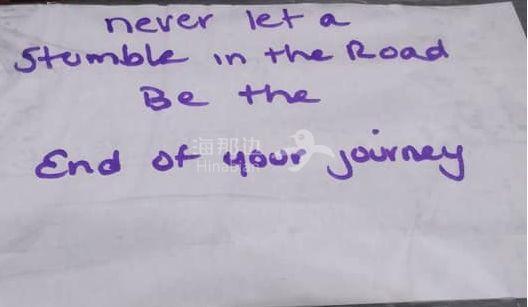 never let a
Stumble in the Road
Be the
海那边
End of your journey
Hinabian